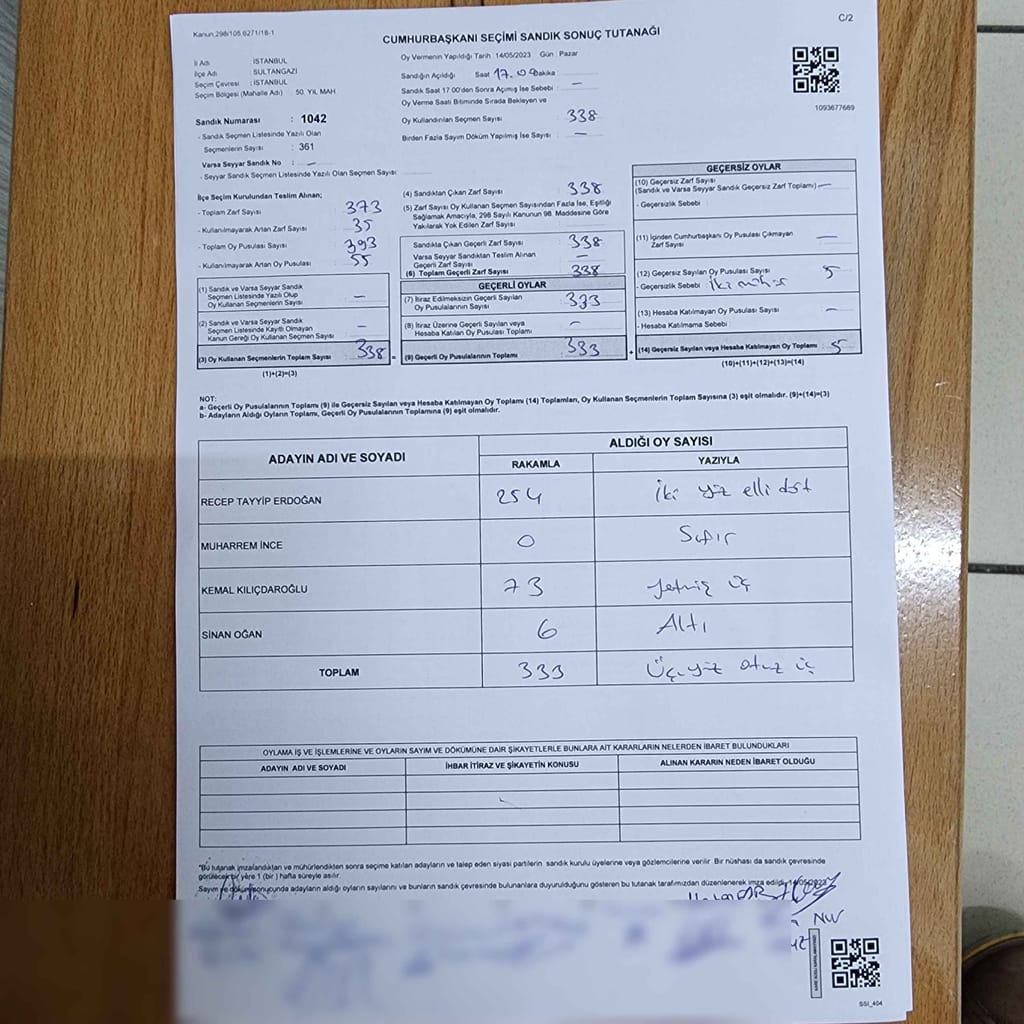 Kanun:298/105,6271/18-1
C/2
CUMHURBAŞKANI SEÇİMİ SANDIK SONUÇ TUTANAĞI
İl Adı : İSTANBUL
İlçe Adı : SULTANGAZİ
Seçim Çevresi : İSTANBUL
Seçim Bölgesi (Mahalle Adı) : 50. YIL MAH
Sandık Numarası : 1042
- Sandık Seçmen Listesinde Yazılı Olan
Seçmenlerin Sayısı : 361
Varsa Seyyar Sandık No : —
- Seyyar Sandık Seçmen Listesinde Yazılı Olan Seçmen Sayısı:
Oy Vermenin Yapıldığı Tarih :14/05/2023 Gün : Pazar
Sandığın Açıldığı Saat 17.00 Dakika
Sandık Saat 17:00'den Sonra Açmış İse Sebebi : —
Oy Verme Saati Bitiminde Sırada Bekleyen ve
Oy Kullandırılan Seçmen Sayısı : 338
Birden Fazla Sayım Döküm Yapılmış İse Sayısı : —
1093677669
İlçe Seçim Kurulundan Teslim Alınan;
- Toplam Zarf Sayısı : 373
- Kullanılmayarak Artan Zarf Sayısı : 35
- Toplam Oy Pusulası Sayısı : 393
- Kullanılmayarak Artan Oy Pusulası : 55
(1) Sandık ve Varsa Seyyar Sandık
Seçmen Listesinde Yazılı Olup
Oy Kullanan Seçmenlerin Sayısı : —
(2) Sandık ve Varsa Seyyar Sandık
Seçmen Listesinde Kayıtlı Olmayan
Kanun Gereği Oy Kullanan Seçmen Sayısı : —
(3) Oy Kullanan Seçmenlerin Toplam Sayısı : 338 =
(1)+(2)=(3)
(4) Sandıktan Çıkan Zarf Sayısı : 338
(5) Zarf Sayısı Oy Kullanan Seçmen Sayısından Fazla İse, Eşitliği
Sağlamak Amacıyla, 298 Sayılı Kanunun 98. Maddesine Göre
Yakılarak Yok Edilen Zarf Sayısı :
Sandıkta Çıkan Geçerli Zarf Sayısı : 338
Varsa Seyyar Sandıktan Teslim Alınan
Geçerli Zarf Sayısı : —
(6) Toplam Geçerli Zarf Sayısı : 338
GEÇERLİ OYLAR
(7) İtiraz Edilmeksizin Geçerli Sayılan
Oy Pusulalarının Sayısı : 333
(8) İtiraz Üzerine Geçerli Sayılan veya
Hesaba Katılan Oy Pusulası Toplamı : —
(9) Geçerli Oy Pusulalarının Toplamı : 333 +
GEÇERSİZ OYLAR
(10) Geçersiz Zarf Sayısı
(Sandık ve Varsa Seyyar Sandık Geçersiz Zarf Toplamı) : —
- Geçersizlik Sebebi :
(11) İçinden Cumhurbaşkanı Oy Pusulası Çıkmayan
Zarf Sayısı : —
(12) Geçersiz Sayılan Oy Pusulası Sayısı : 5
- Geçersizlik Sebebi : İki mühür
(13) Hesaba Katılmayan Oy Pusulası Sayısı : —
- Hesaba Katılmama Sebebi :
(14) Geçersiz Sayılan veya Hesaba Katılmayan Oy Toplamı : 5
(10)+(11)+(12)+(13)=(14)
NOT:
a- Geçerli Oy Pusulalarının Toplamı (9) ile Geçersiz Sayılan veya Hesaba Katılmayan Oy Toplamı (14) Toplamları, Oy Kullanan Seçmenlerin Toplam Sayısına (3) eşit olmalıdır. (9)+(14)=(3)
b- Adayların Aldığı Oyların Toplamı, Geçerli Oy Pusulalarının Toplamına (9) eşit olmalıdır.
ADAYIN ADI VE SOYADI
ALDIĞI OY SAYISI
RAKAMLA YAZIYLA
RECEP TAYYİP ERDOĞAN 254 İki yüz elli dört
MUHARREM İNCE 0 Sıfır
KEMAL KILIÇDAROĞLU 73 Yetmiş üç
SİNAN OĞAN 6 Altı
TOPLAM 333 Üç yüz otuz üç
OYLAMA İŞ VE İŞLEMLERİNE VE OYLARIN SAYIM VE DÖKÜMÜNE DAİR ŞİKAYETLERLE BUNLARA AİT KARARLARIN NELERDEN İBARET BULUNDUKLARI
ADAYIN ADI VE SOYADI İHBAR İTİRAZ VE ŞİKAYETİN KONUSU ALINAN KARARIN NEDEN İBARET OLDUĞU
*Bu tutanak imzalandıktan ve mühürlendikten sonra seçime katılan adayların ve talep eden siyasi partilerin sandık kurulu üyelerine veya gözlemcilerine verilir. Bir nüshası da sandık çevresinde
görülecek bir yere 1 (bir) hafta süreyle asılır.
Sayım ve döküm sonucunda adayların aldığı oyların sayılarını ve bunların sandık çevresinde bulunanlara duyurulduğunu gösteren bu tutanak tarafımızdan düzenlenerek imza edildi. 14/05/2023
SSI_404